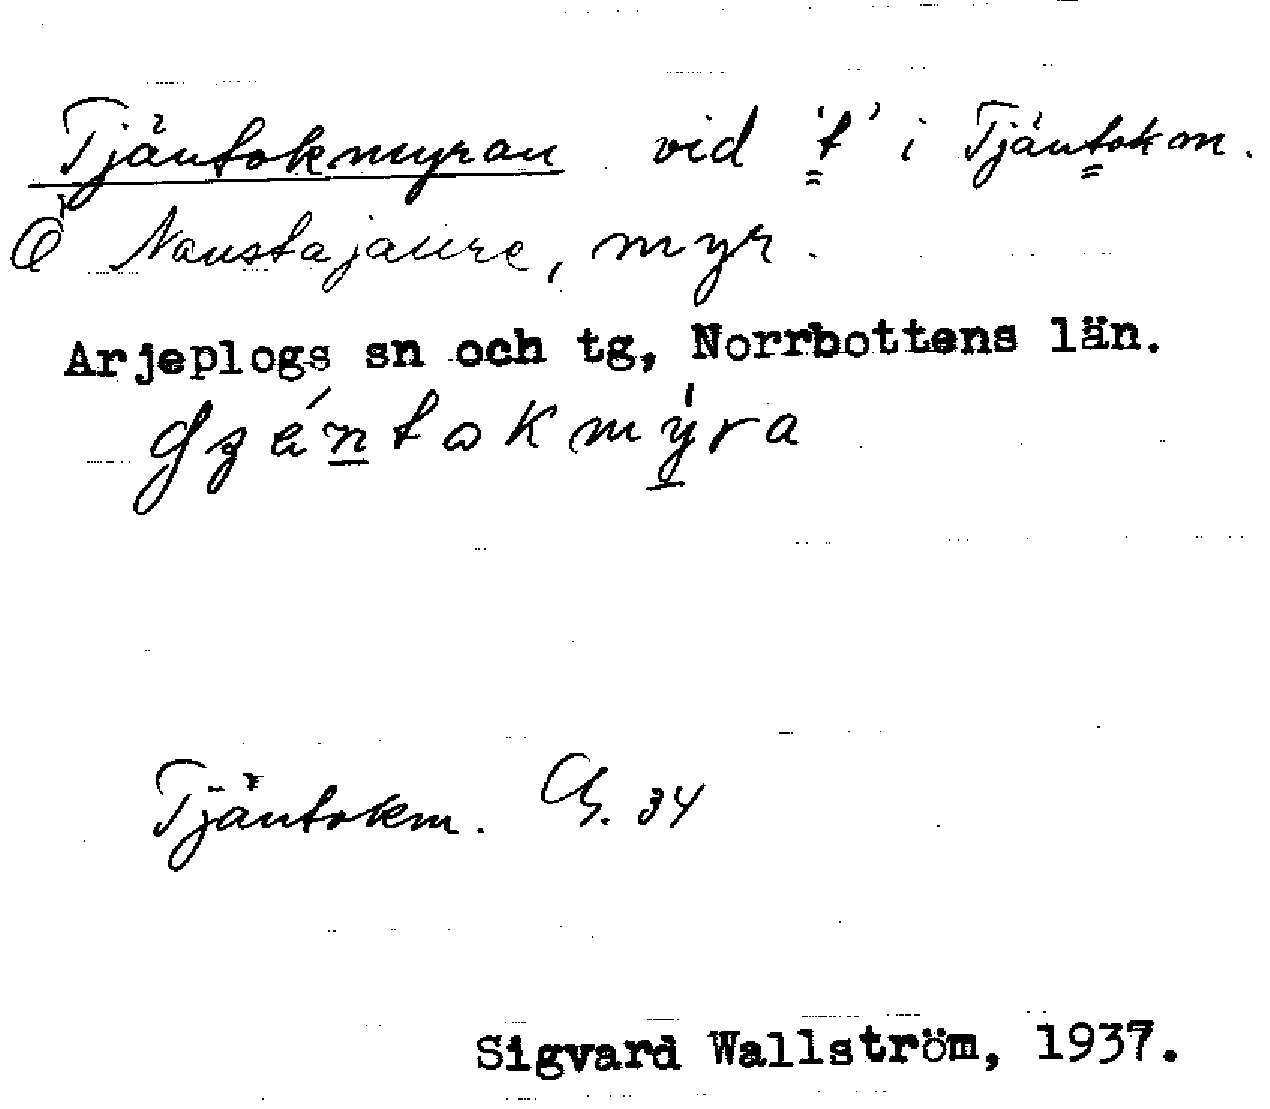 Tjäntokmyran vid 't' i Tjäntokm.
Ö Naustajaure, myr.
Arjeplogs sn och tg, Norrbottens län.
Tjäntokm. 34
Sigvard Wallström, 1937.